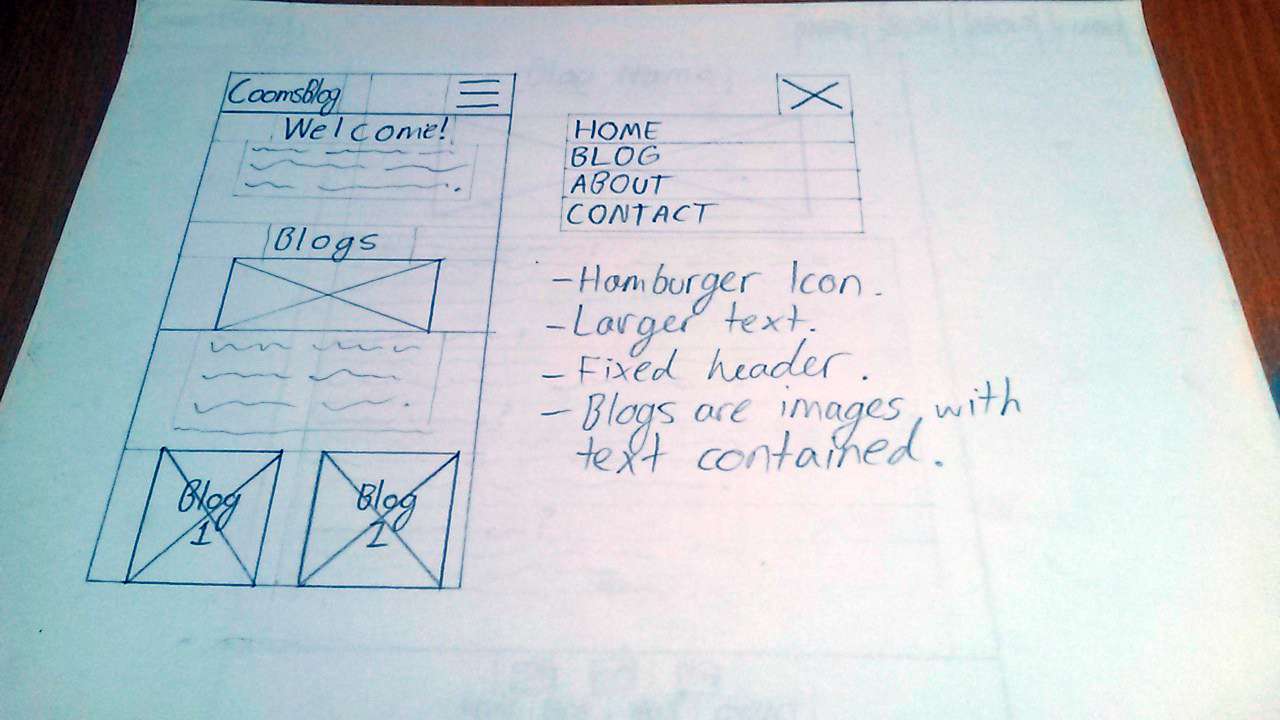 CoomsBlog
Welcome!
Blogs
Blog
1
Blog
1
HOME
BLOG
ABOUT
CONTACT
- Hamburger Icon.
- Larger text.
- Fixed header.
- Blogs are images, with
text contained.